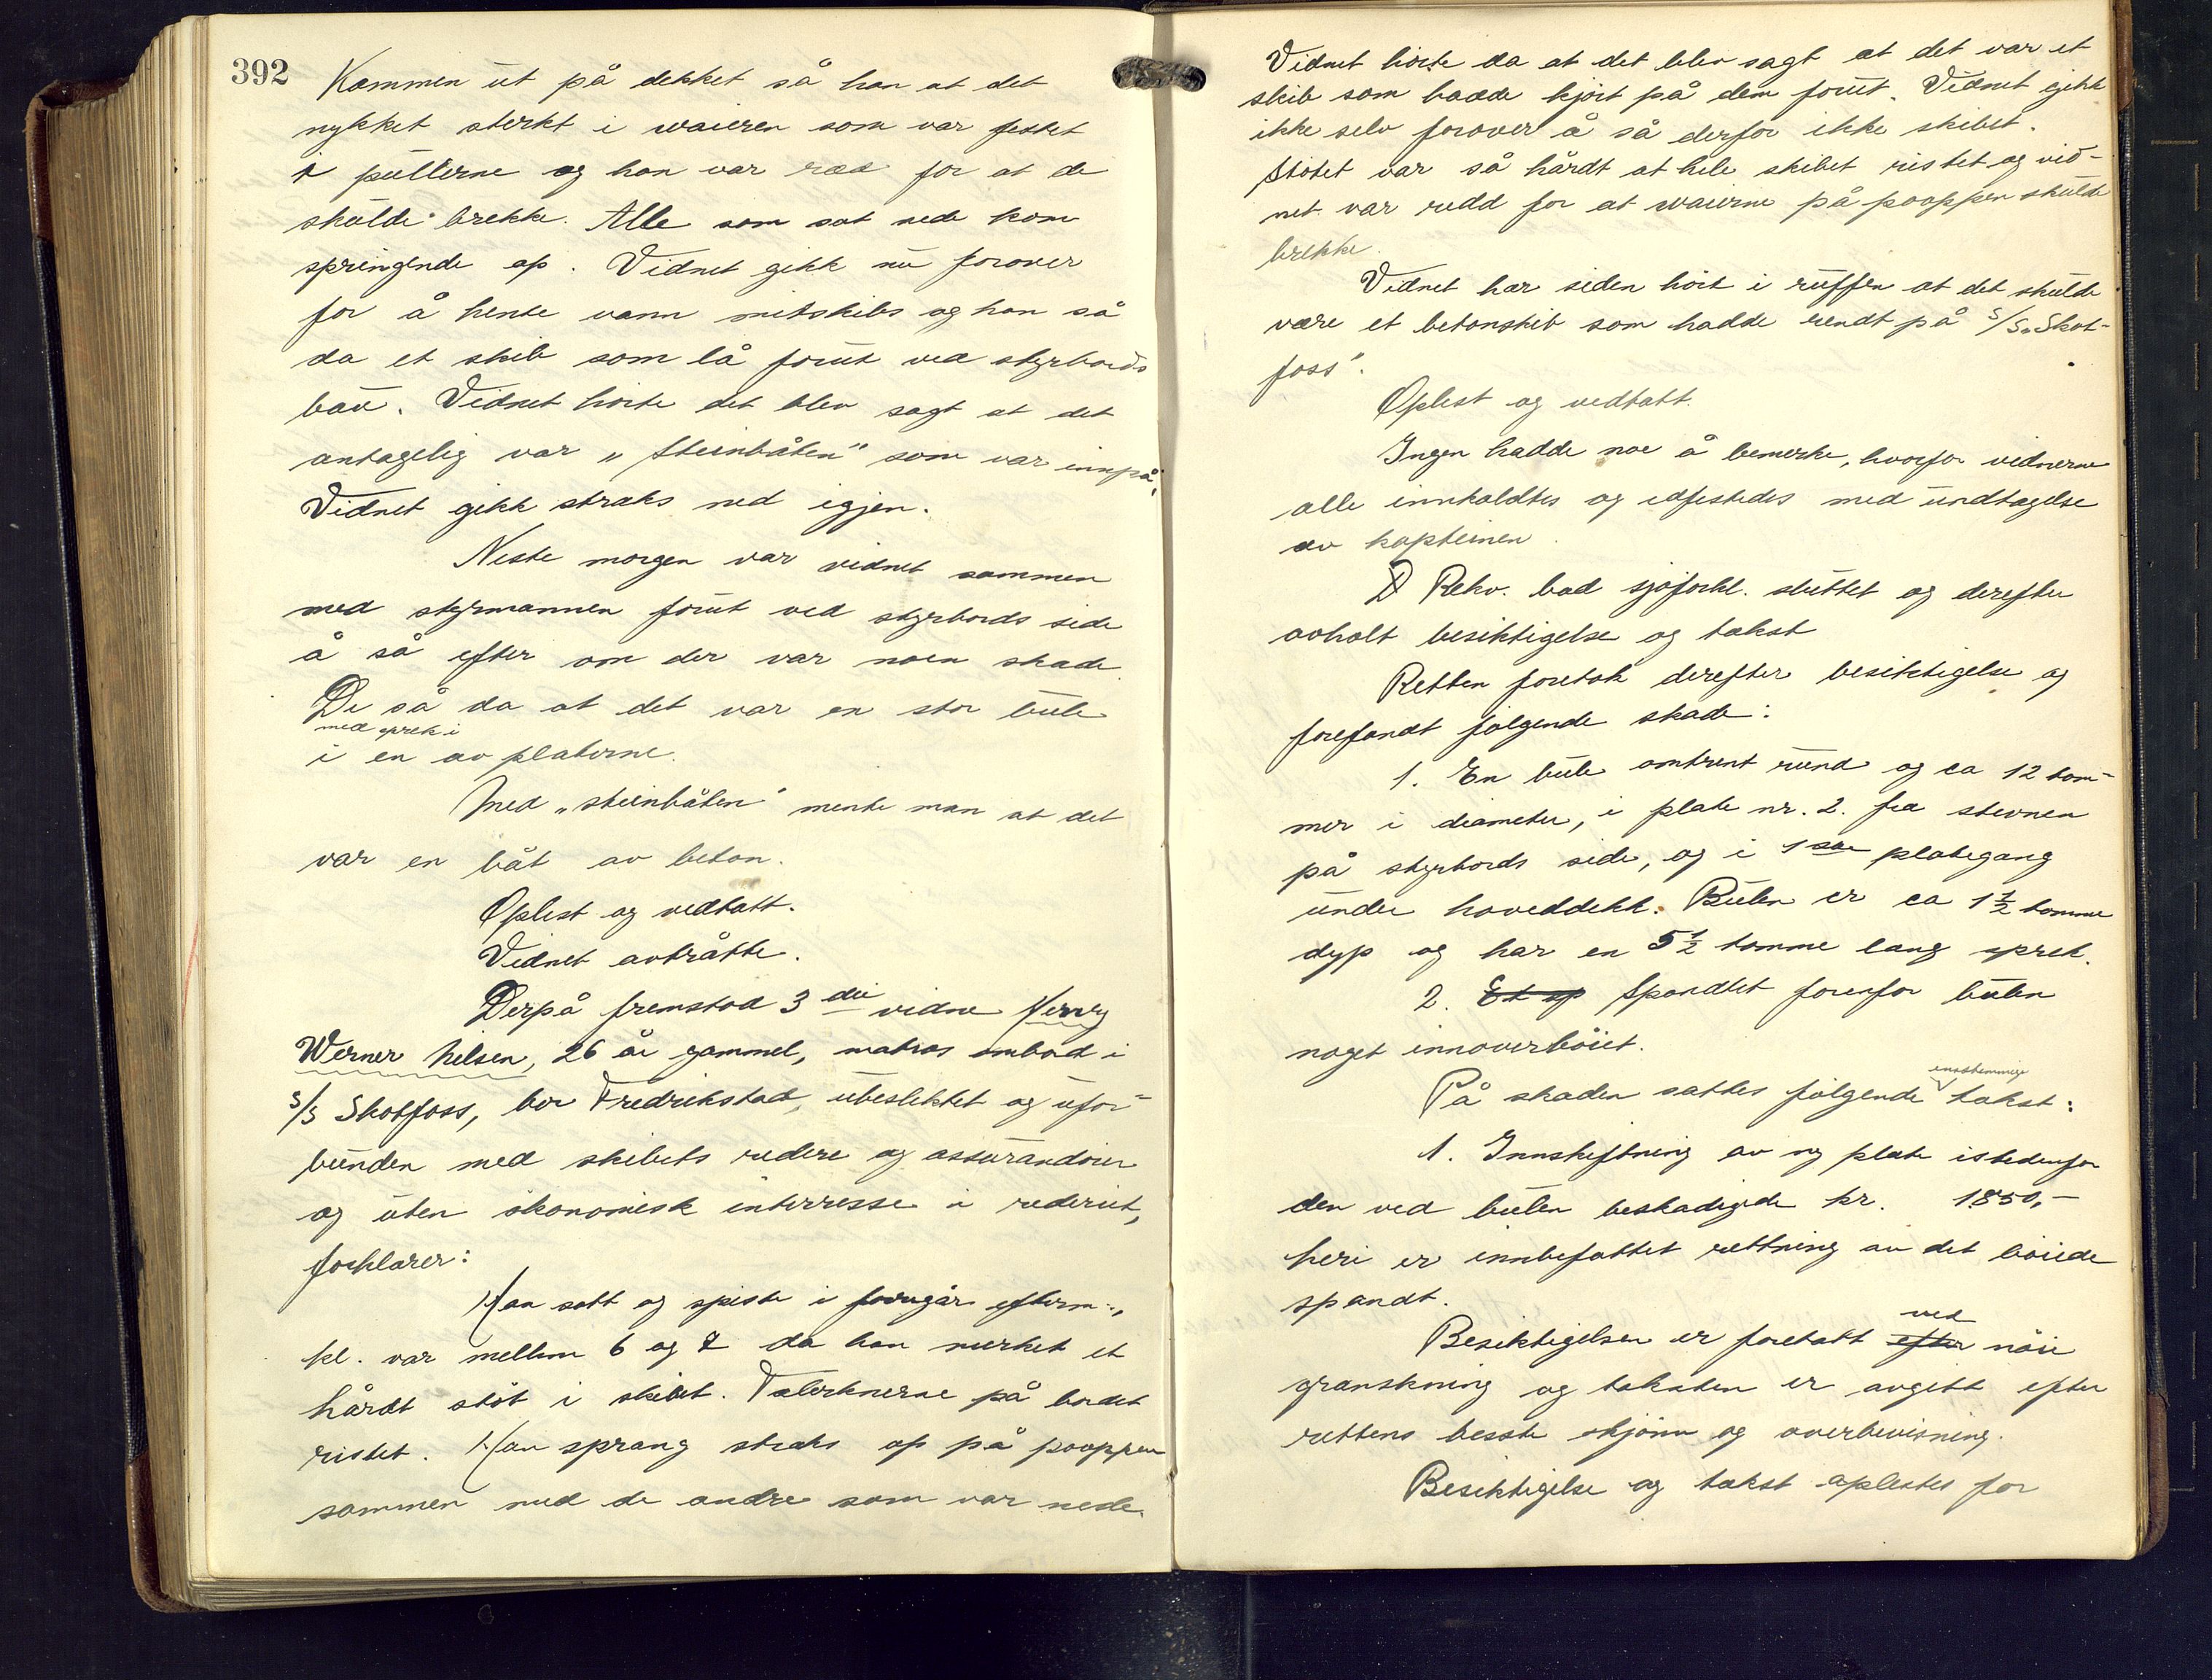 392
Kommen ut på dekket så han at det
nykket sterkt i waieren som var festet
i pullerne og han var ræd for at de
skulde brekke. Alle som sat nede kom
springende op. Vidnet gikk nu forover
for å hente vann mitskibs og han så
da et skib som lå forut ved styrbords
bau. Vidnet hörte det blev sagt at det
antagelig var „Steinbåten" som var innpå.
Vidnet gikk straks ned igjen.
Neste morgen var vidnet sammen
med styrmannen forut ved styrbords side
å så efter om der var noen skade.
De så da at det var en stor bule
med sprek i
i en av platerne.
Med „steinbåten" mente man at det
var en båt av beton.
Oplest og vedtatt.
Vidnet avtråtte.
Derpå fremstod 3die vidne
Werner Nilsen, 26 år gammel, matros ombord i
s/s Skotfoss, bor Fredrikstad, ubeslektet og ufor-
bunden med skibets redere og assurandörer
og uten ökonomisk interresse i rederiet,
forklarer:
Han satt og spiste i forrigårs efterm.,
kl. var mellem 6 og 7 da han merket et
hårdt stöt i skibet. Talerknerne på bordet
ristet. Han sprang straks op på pooppen
sammen med de andre som var nede.
Vidnet hörte da at det blev sagt at det var et
skib som hadde kjört på dem forut. Vidnet gikk
ikke selv forover å så derfor ikke skibet.
Stötet var så hårdt at hele skibet ristet og vid-
net var redd for at waierne på pooppen skulde
brekke.
Vidnet har siden hört i ruffen at det skulde
være et betonskib som hadde rendt på s/s „Skot-
foss".
Oplest og vedtatt.
Ingen hadde noe å bemerke, hvorfor vidnerne
alle innkaldtes og edfestedes med undtagelse
av kapteinen.
D Rekv. bad sjöforkl. sluttet og derefter
avholt besiktigelse og takst
Retten foretok derefter besiktigelse og
forefandt fölgende skade:
1. En bule omtrent rund og ca 12 tom-
mer i diameter, i plate nr. 2. fra stevnen
på styrbords side, og i 1ste plategang
under hoveddekk. Bulen er ca 1½ tomme
dyp og har en 5½ tomme lang sprek.
2. Et sp Spandtet forenfor bulen
noget innoverböiet.
enstemmige
På skaden sattes fölgende takst:
1. Innskiftning av ny plate istedenfor
den ved bulen beskadigede kr. 1850,-
heri er innbefattet rettning av det böiede
spandt.
ved
Besiktigelsen er foretatt efter nöie
granskning og taksten er avgitt efter
rettens beste skjönn og overbevisning.
Besiktigelse og takst oplestes for